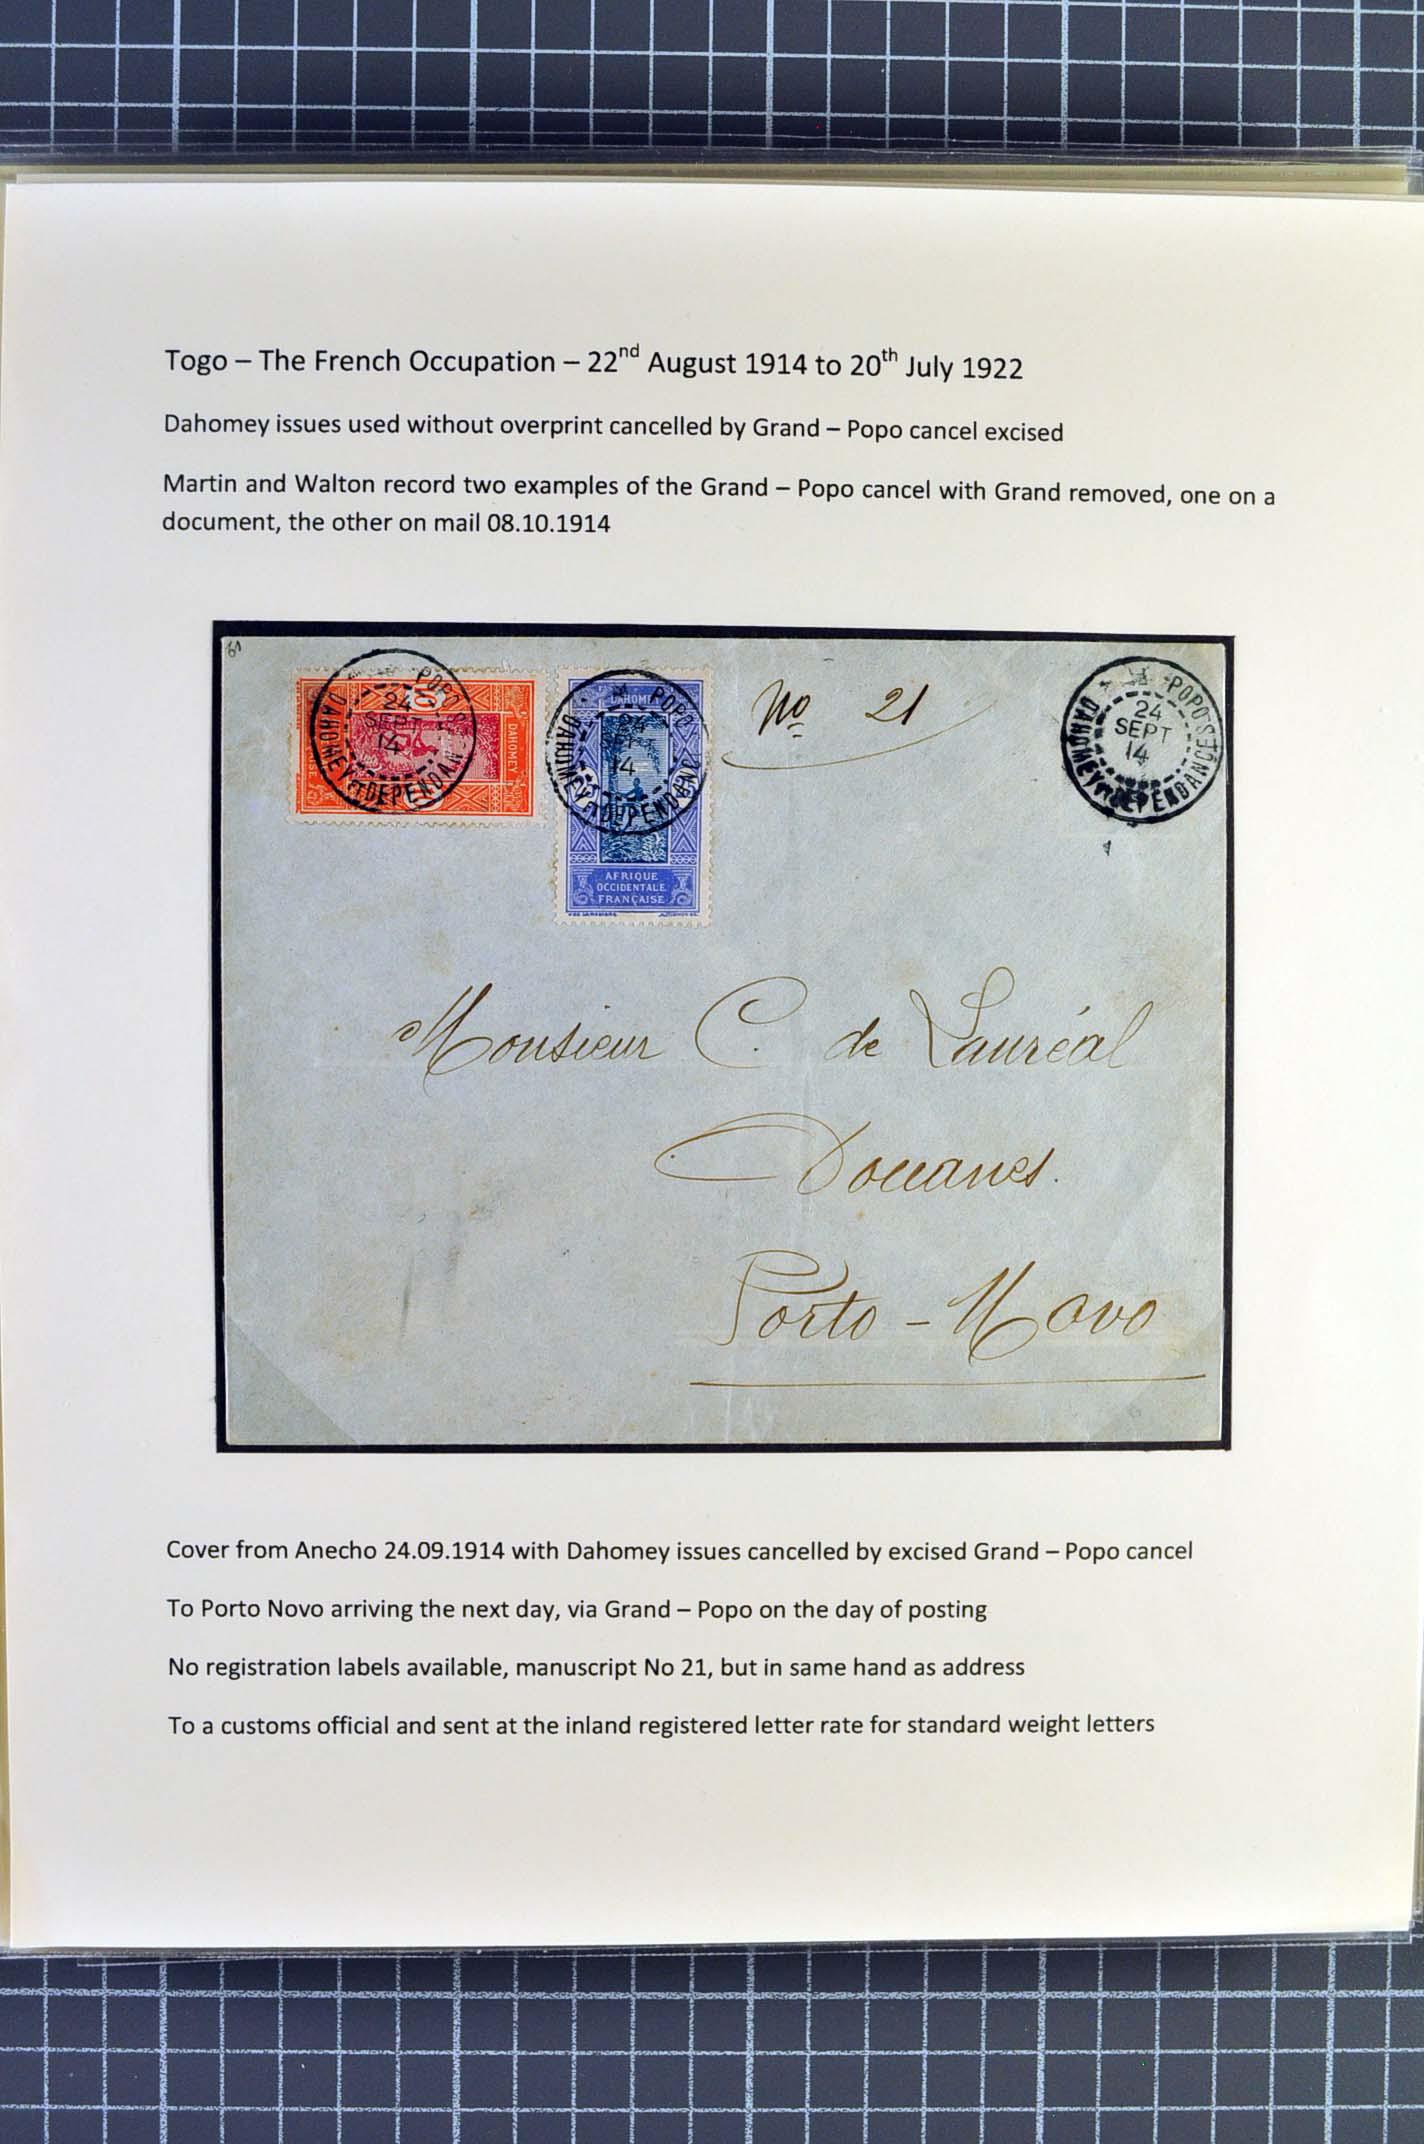 Togo – The French Occupation – 22nd August 1914 to 20th July 1922
Dahomey issues used without overprint cancelled by Grand – Popo cancel excised
Martin and Walton record two examples of the Grand – Popo cancel with Grand removed, one on a
document, the other on mail 08.10.1914
POPO
24
SEPT
14
DAHOMEY ET DEPENDANCES
DAHOMEY
DAHOMEY
POPO
24
14
DAHOMEY ET DEPENDANCES
AFRIQUE
OCCIDENTALE
FRANÇAISE
No 21
-POPO
24
SEPT
14
DAHOMEY ET DEPENDANCES
Monsieur C. de Lauréal
Douanes.
Porto - Novo
Cover from Anecho 24.09.1914 with Dahomey issues cancelled by excised Grand – Popo cancel
To Porto Novo arriving the next day, via Grand – Popo on the day of posting
No registration labels available, manuscript No 21, but in same hand as address
To a customs official and sent at the inland registered letter rate for standard weight letters